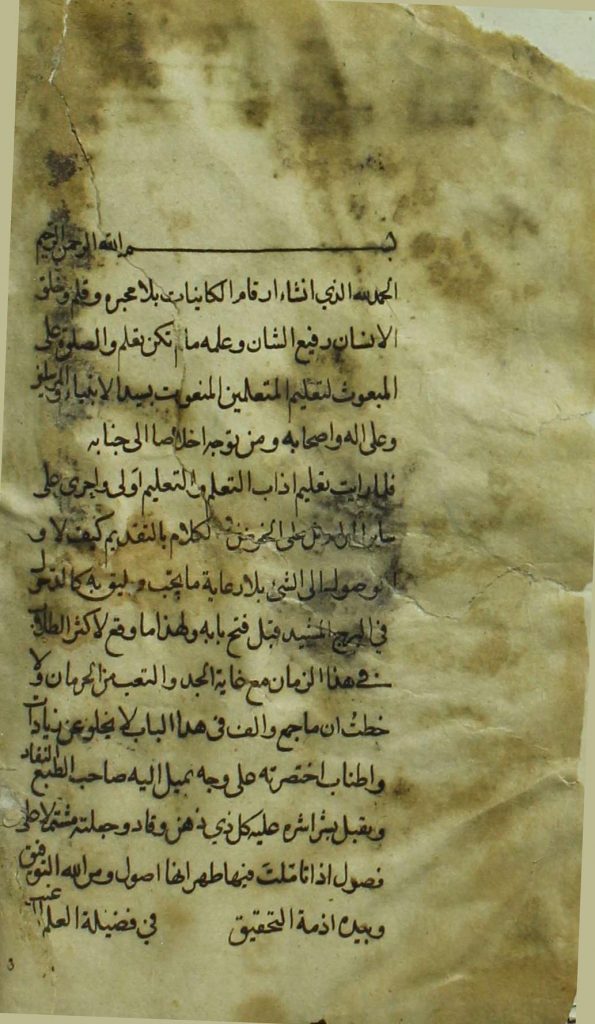 بسم الله الرحمن الرحيم
الحمدلله الذي انشاء ارقام الكاينات بلا محبره وقلم وخلق
الانسان رفيع الشان وعلمه مالم تكن تعلم والصلوة على
المبعوث لتعليم المتعلمين المنعوت بسيد الانبياء والمرسلين
وعلى اله واصحابه ومن توجه اخلاصا الى جنابه
فلما رايت تعليم اداب التعلم والتعليم اولى واحرى على
ساير على الخوض في الكلام بالتقديم كيف لا و
الوصول الى الشئ بلا رعاية ما يجب ويليق به كالدخول
في البرج المشيد قبل فتح بابه ولهذا ما وقع لاكثر الطلاب
في هذا الزمان مع غاية الجد والتعب من الحرمان ولا
خطت ان ما جمع والف في هذا الباب لا يخلو عن زيادات
واطناب اختصرته على وجه يميل اليه صاحب الطبع النقاد
ويقبل بشراشره عليه كل ذي ذهن وقاد وجعلته مشتملا على
فصول اذا تاملت فيها ظهر انها اصول ومن الله التوفيق
وبيده ازمة التحقيق في فضيلة العلم